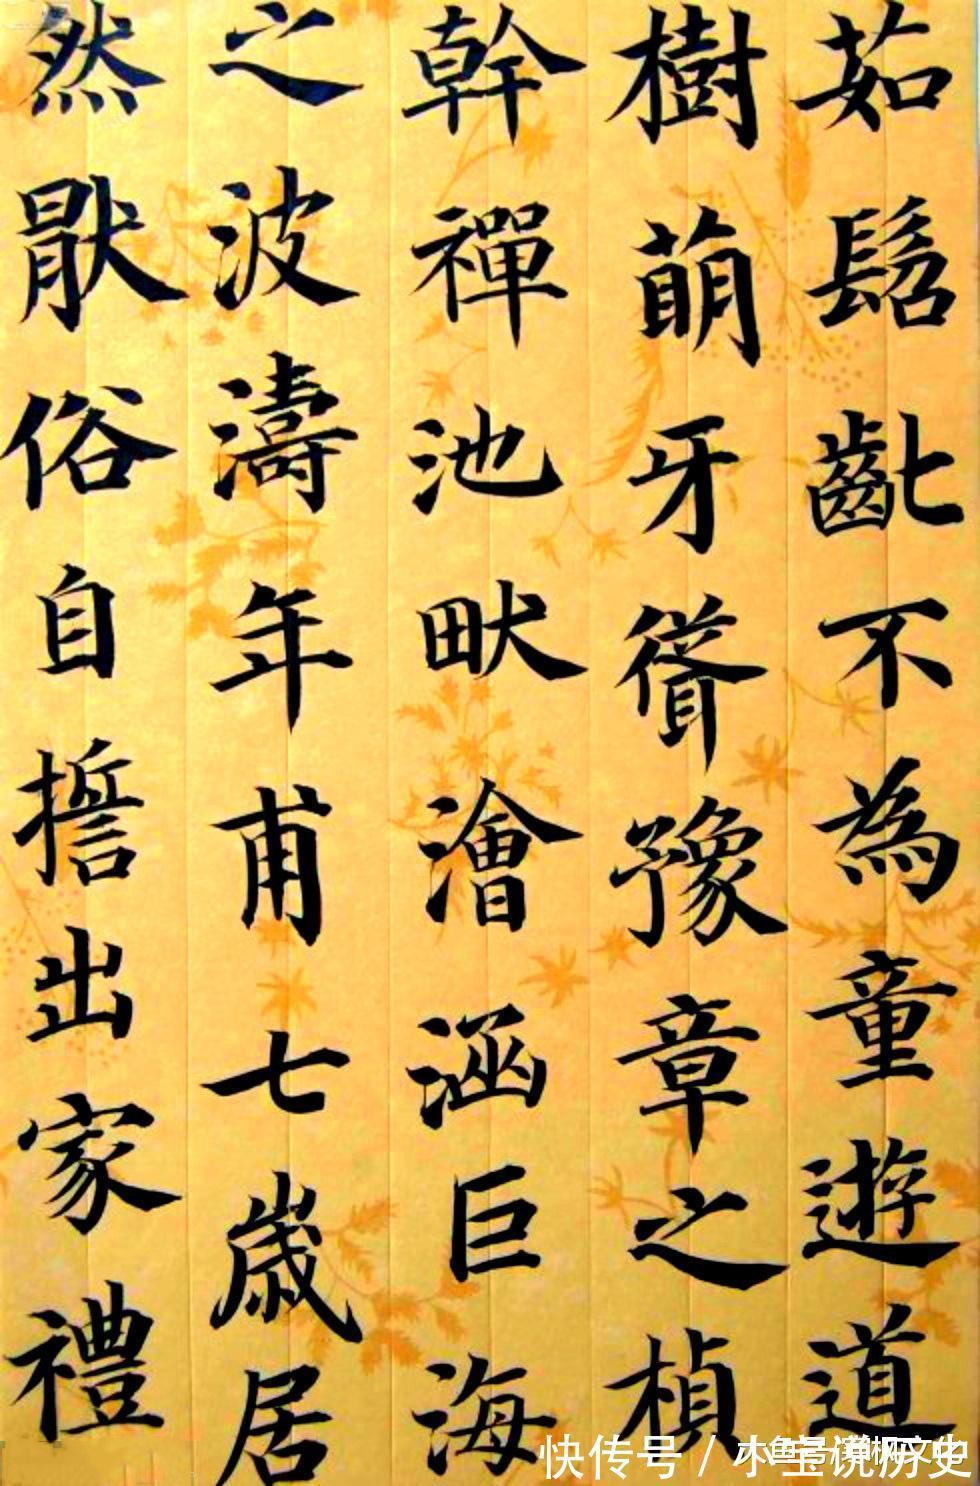 茹髫齔不為童遊道
樹萌牙聳豫章之楨
幹禪池畎澮涵巨海
之波濤年甫七歲居
然猒俗自擔出家禮
快传号 / 小宝说历史